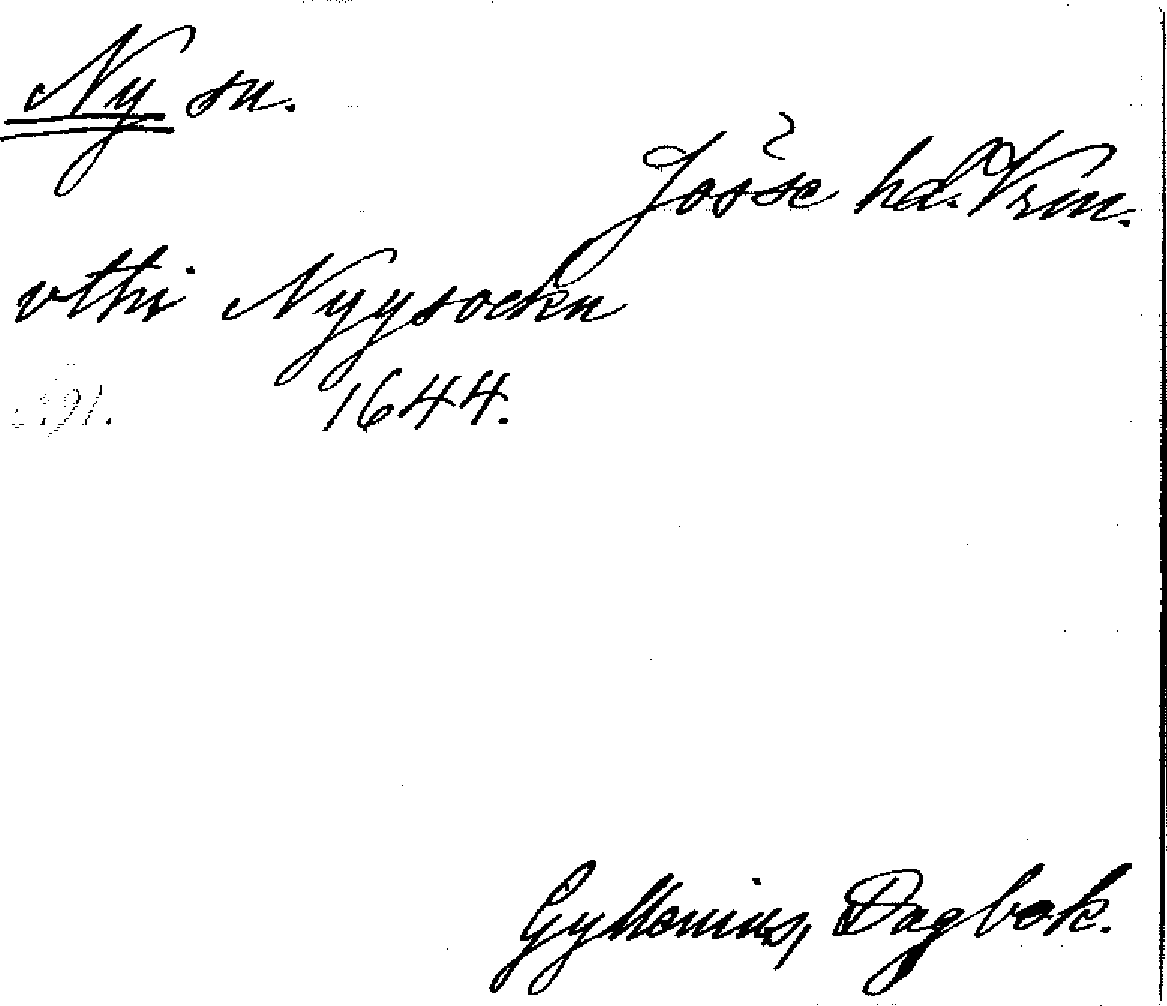 Ny sn.
Jösse hd. Vrm.
vthi Nyysockn
s. 91. 1644.
Gyllenius, Dagbok.